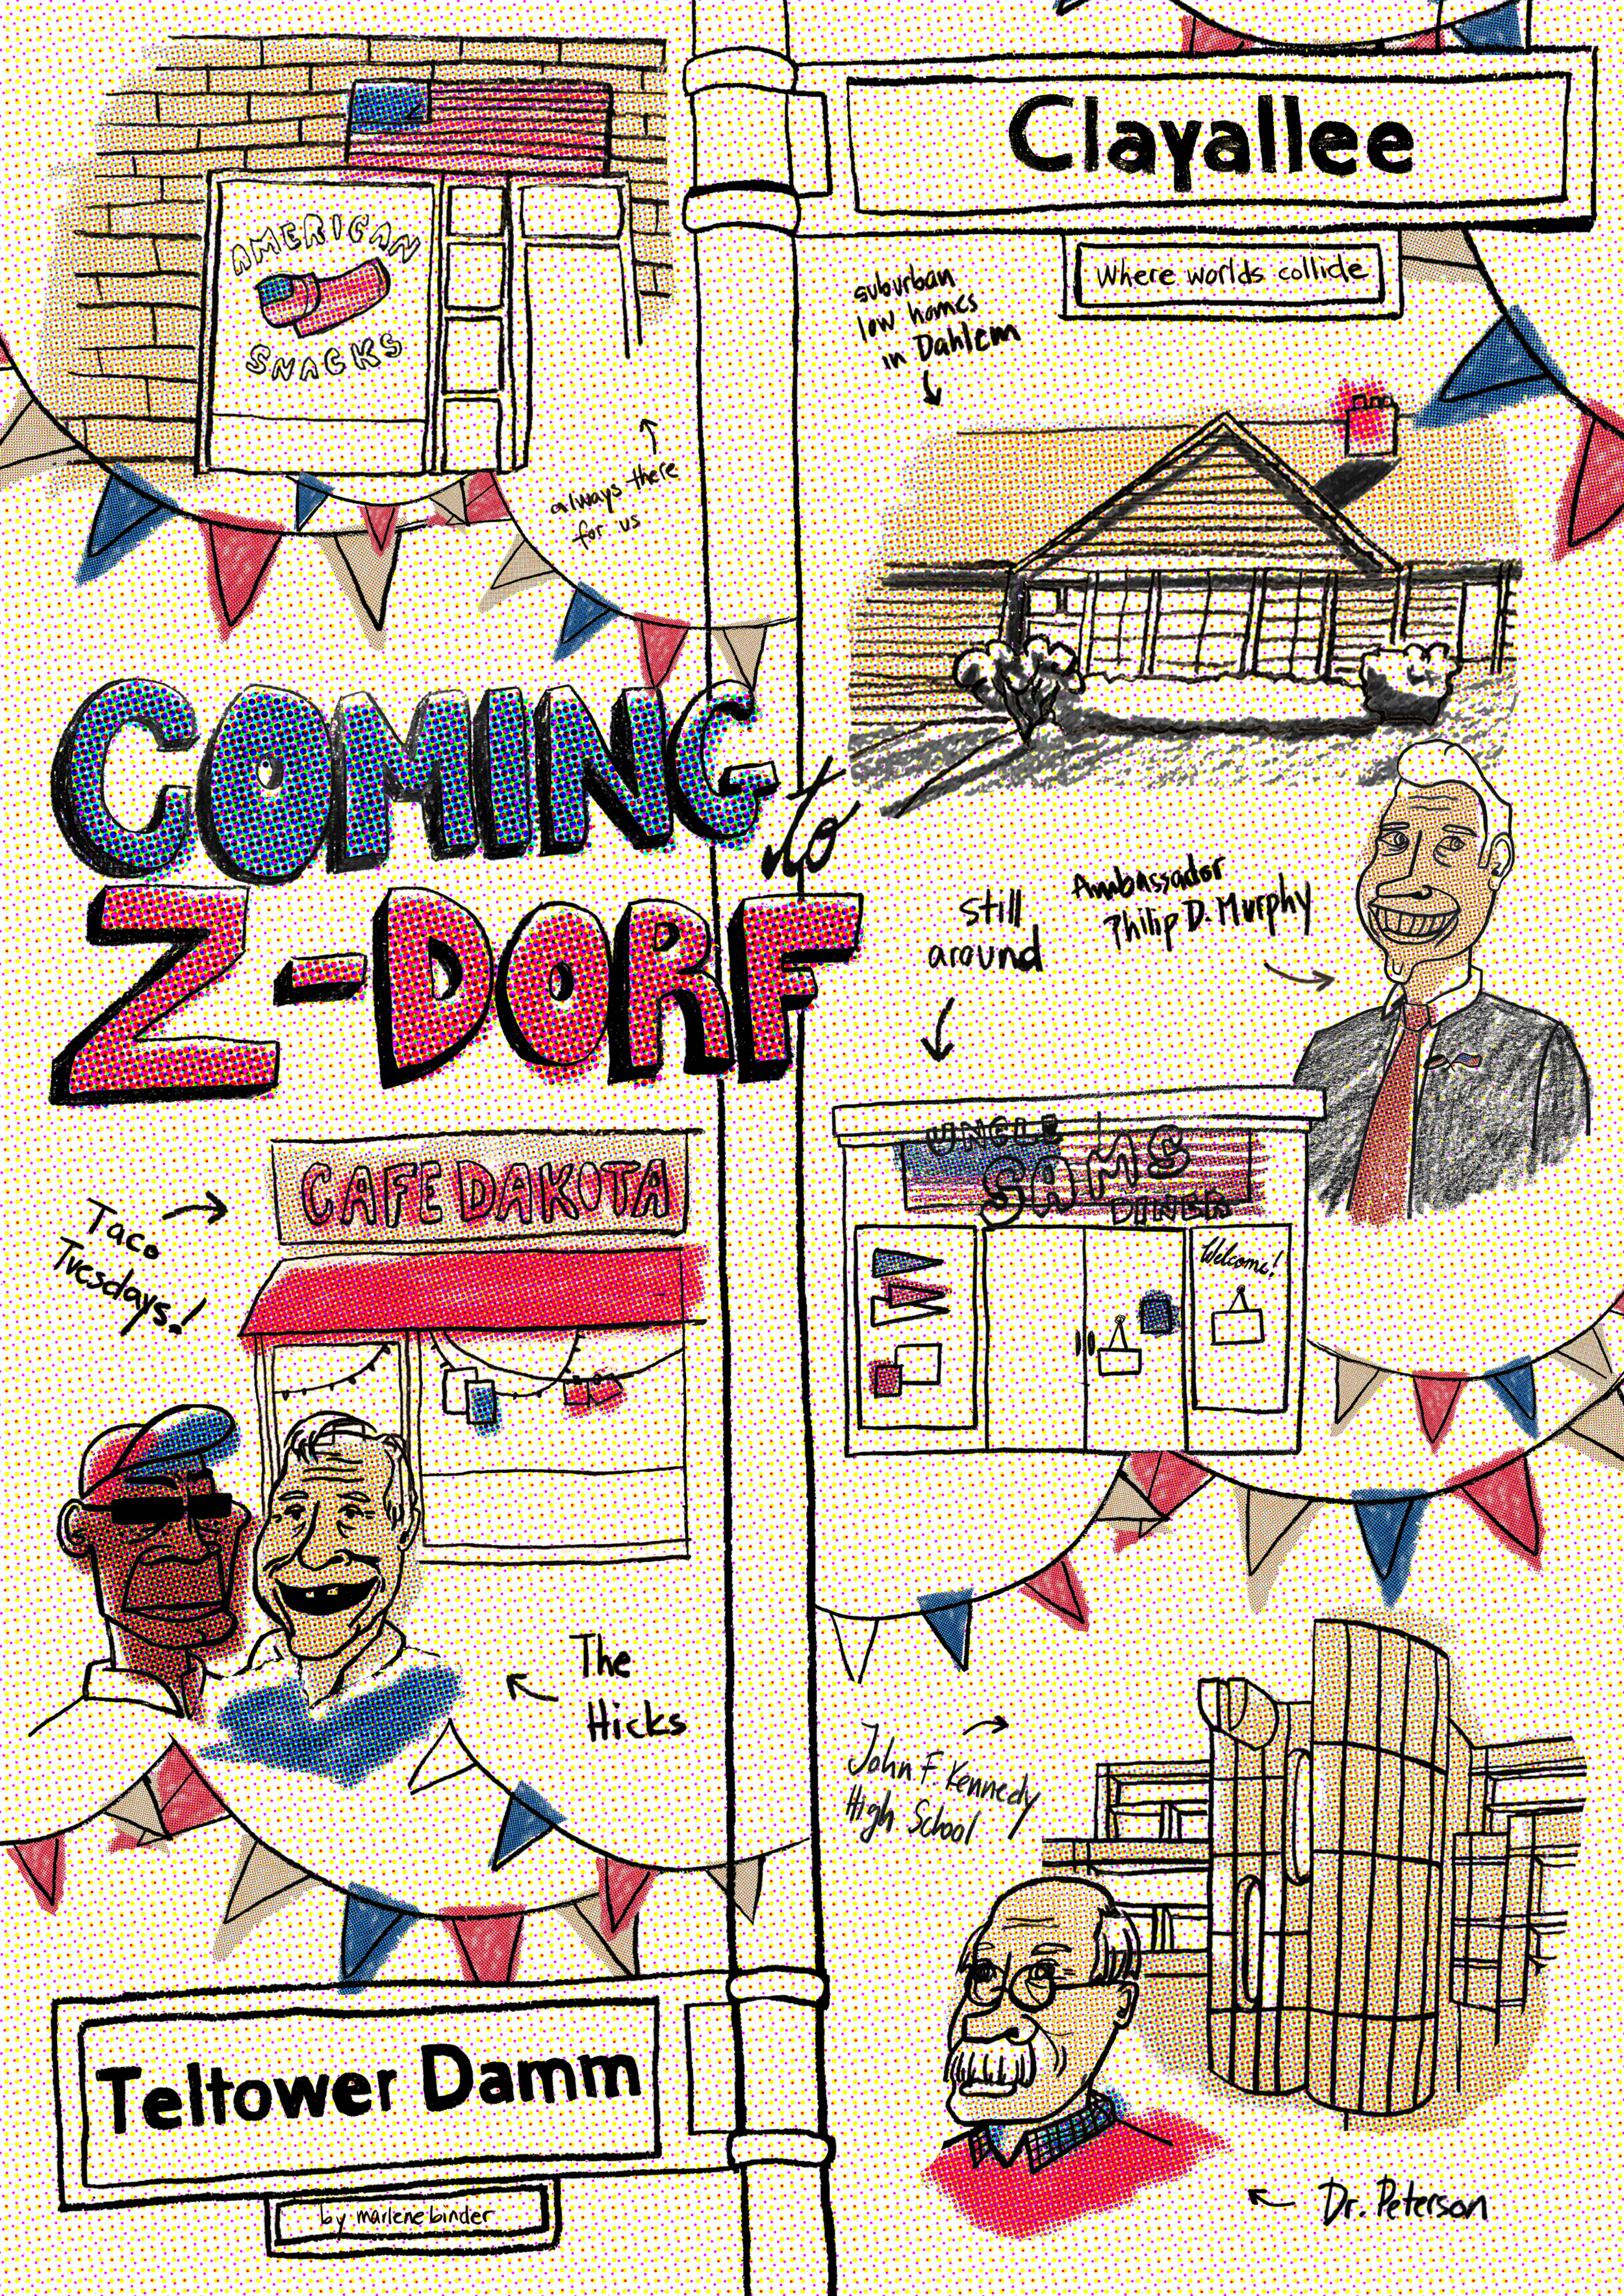 Clayallee
Where worlds collide
AMERICAN
SNACKS
always there
for us
suburban
low homes
in Dahlem
COMING
to
Z-DORF
still
around
Ambassador
Philip D. Murphy
UNCLE
SAMS
DINER
Welcome!
CAFE DAKOTA
Taco
Tuesdays!
The
Hicks
John F. Kennedy
High School
Dr. Peterson
Teltower Damm
by marlene binder